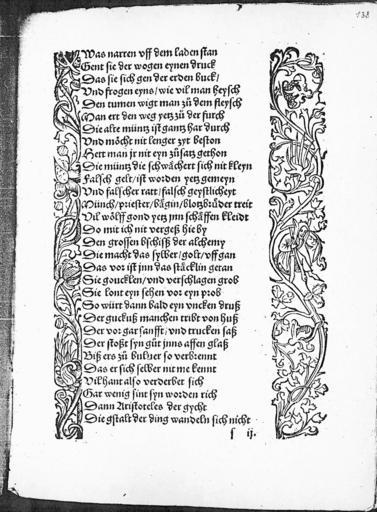 138
Was narren vff dem laden stan
Gent sie der wogen eynen druck
Das sie sich gen der erden buck/
Vnd frogen eyns/ wie vil man heysch
Den tumen wigt man zů dem fleysch
Man ert den weg yetz zů der furch
Die alte müntz ist gantz har durch
Vnd möcht nit lenger zyt beston
Hett man jr nit eyn zůsatz gethon
Die müntz die schwächert sich nit kleyn
Falsch gelt/ ist worden yetz gemeyn
Vnd falscher ratt/ falsch geystlicheyt
Münch/ priester/ bägin/ blotzbrůder treit
Vil wölff gond yetz jnn schäffen kleidt
Do mit ich nit vergeß hie by
Den grossen bschiß der alchemy
Die macht das sylber/ golt/ vff gan
Das vor ist jnn das stäcklin getan
Sie goucklen/ vnd verschlagen grob
Sie lont eyn sehen vor eyn prob
So würt dann bald eyn vncken druß
Der guckuß manchen tribt von huß
Der vor gar sanfft/ vnd trucken saß
Der stoßt syn gůt jnns affen glaß
Biß ers zů buluer so verbrennt
Das er sich selber nit me kennt
Vil hant also verderbet sich
Gar wenig sint syn worden rich
Dann Aristoteles der gycht
Die gstalt der ding wandeln sich nicht
ſ ij.